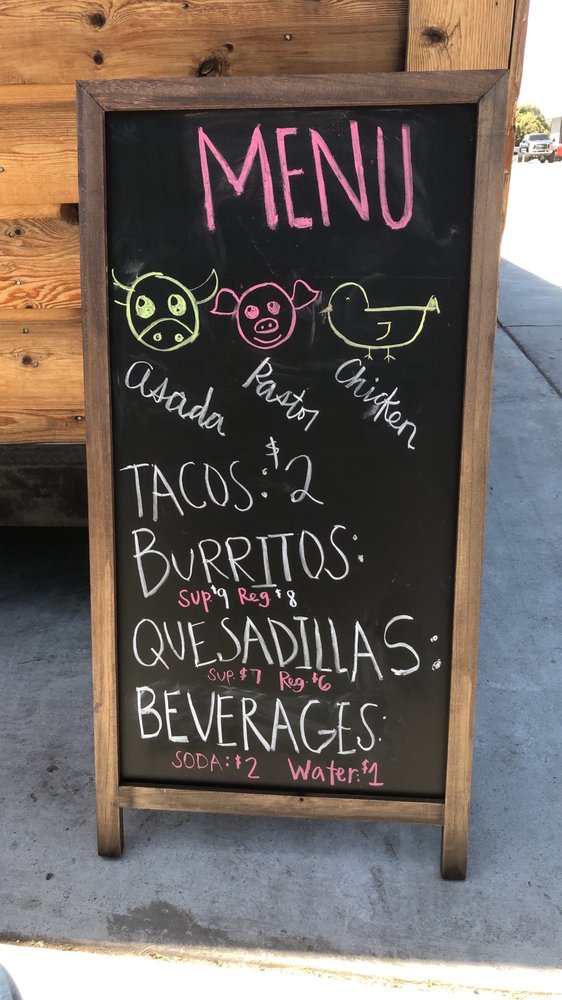 MENU
asada Pastor Chicken
TACOS: $2
BURRITOS:
Sup $9 Reg $8
QUESADILLAS:
SUP. $7 Reg. $6
BEVERAGES:
SODA: $2 Water: $1